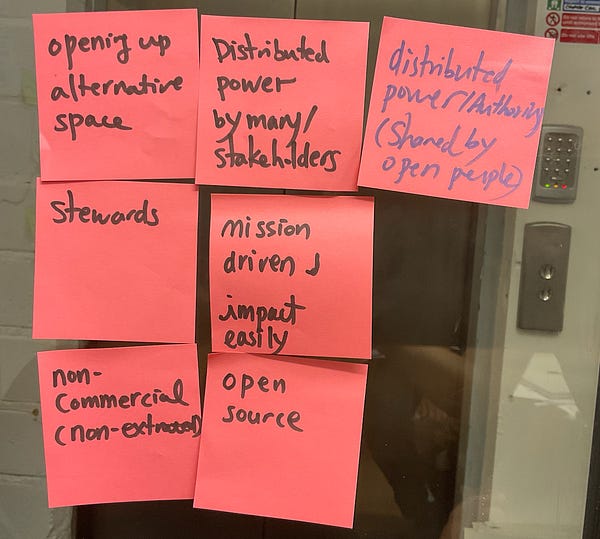 opening up
alternative
space
Distributed
power
by many/
stakeholders
distributed
power/Authority
(Shared by
open people)
Stewards
mission
driven
impact
easily
non-
Commercial
open
source